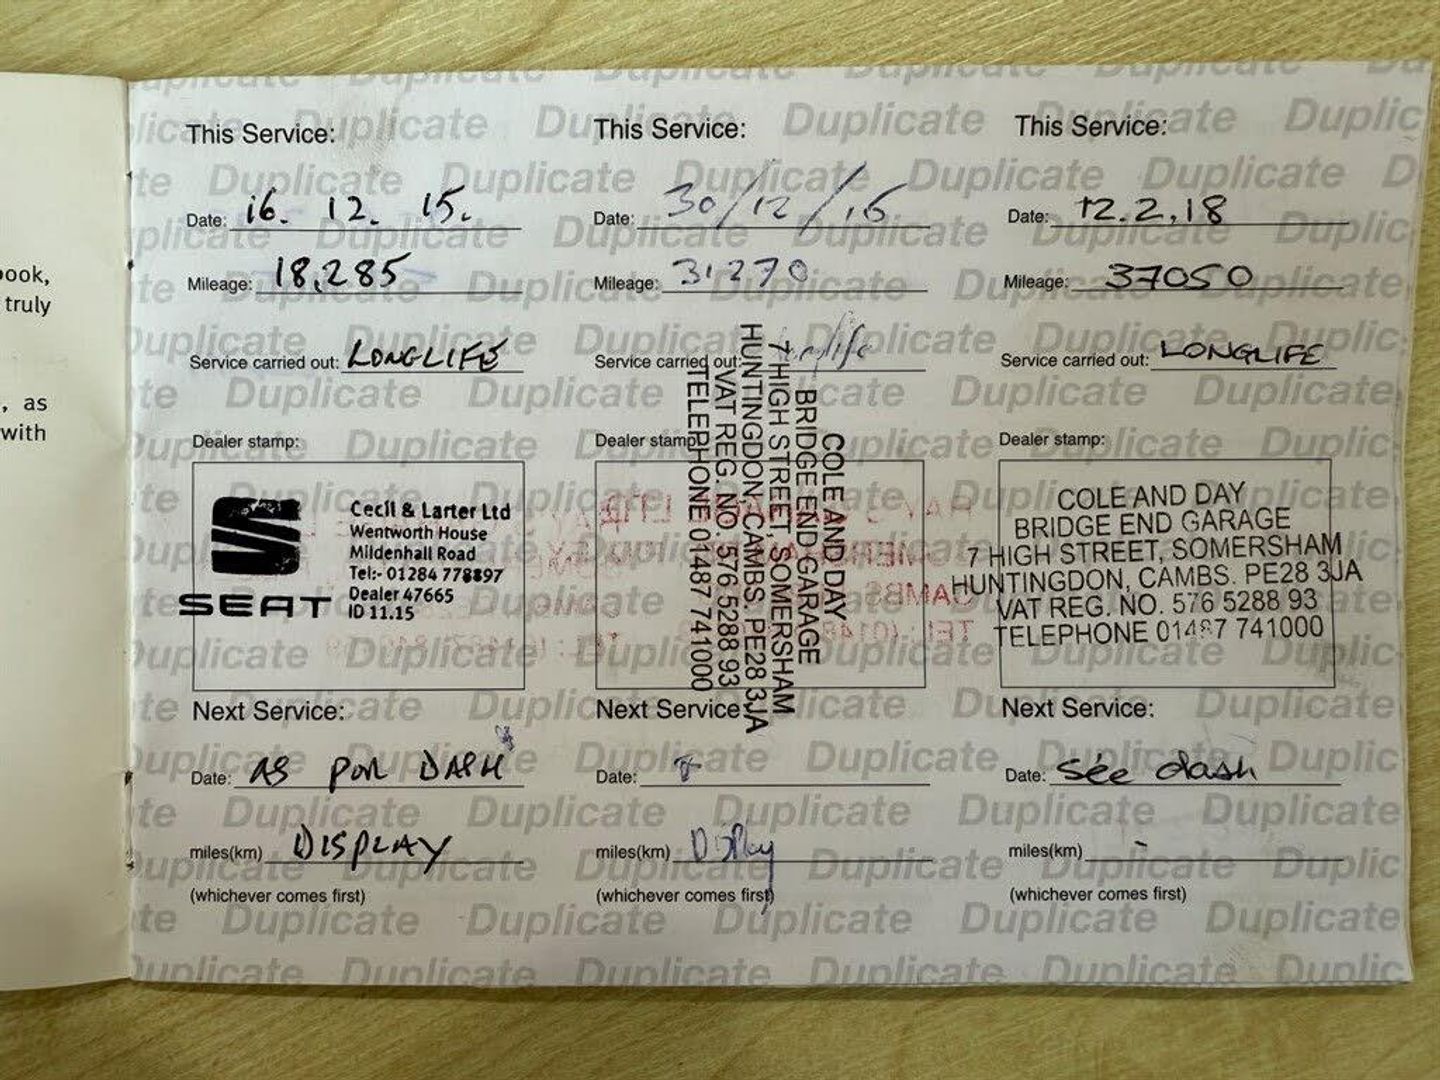 ook,
truly
, as
with
This Service:
Date: 16. 12. 15.
Mileage: 18,285
Service carried out: LONGLIFE
Dealer stamp:
SEAT
Cecil & Larter Ltd
Wentworth House
Mildenhall Road
Tel:- 01284 778897
Dealer 47665
ID 11.15
Next Service:
Date: AS PER DASH
miles(km) DISPLAY
(whichever comes first)
This Service:
Date: 30/12/16
Mileage: 31270
Service carried out:
Dealer stamp:
COLE AND DAY
BRIDGE END GARAGE
7 HIGH STREET, SOMERSHAM
HUNTINGDON, CAMBS. PE28 3JA
VAT REG. NO. 576 5288 93
TELEPHONE 01487 741000
Next Service:
Date:
miles(km) Display
(whichever comes first)
This Service:
Date: 12.2.18
Mileage: 37050
Service carried out: LONGLIFE
Dealer stamp:
COLE AND DAY
BRIDGE END GARAGE
7 HIGH STREET, SOMERSHAM
HUNTINGDON, CAMBS. PE28 3JA
VAT REG. NO. 576 5288 93
TELEPHONE 01487 741000
Next Service:
Date: See dash
miles(km) -
(whichever comes first)
Duplicate